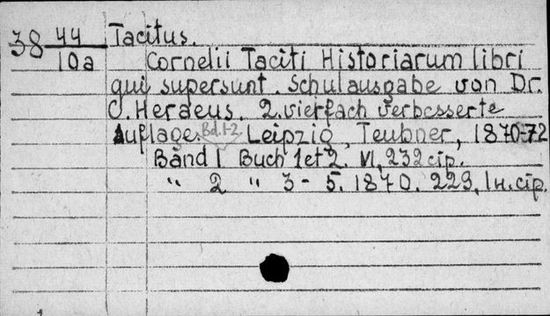 38 44/10a Tacitus.
Cornelii Taciti Historiarum libri
qui supersunt. Schulausgabe von Dr.
C. Heraeus. 2. vielfach verbesserte
Auflage. Bd. 1-2 Leipzig, Teubner, 1870-72
Band I Buch 1 et 2. VI, 232 стр.
" 2 " 3 - 5. 1870. 223, 1 н. стр.
1